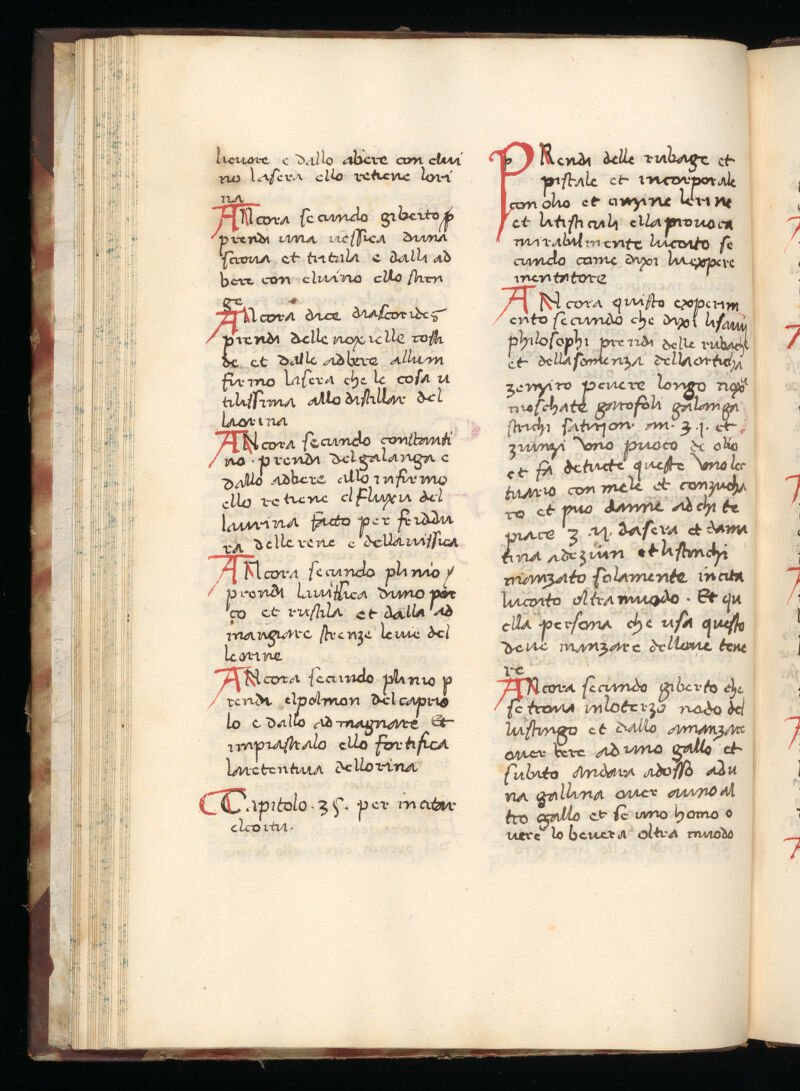 lieuore e dallo abere con elui
no lasera ello retiene lori
na
ANcora secundo giberto p
prendi una uessica duna
scroua et tritala e dalla ad
bere con eluino ello stren
ge
ANcora dice diascorides
prendi delle noxielle rosti
de et dalle adbere allum
firmo lasera che le cosa u
tilissima allo distillar del
laorina
ANcora secundo constanti
no . prendi del galanga e
dallo adbere allo infirmo
ello retiene el fluxu del
laurina facto per friddu
ra delle rene e della uissica
ANcora secundo plinio
prendi lauissica duno por
co et rustila et dalla ad
mangiare strenze leue del
leorine
ANcora secundo plinio p
rendi elpolmon del caprio
lo e dallo ad magnare Et
impiastralo ello fortifica
laretentiua dellorina
Capitolo . 35 . per incitar
elcoitu .
PRendi delle rubage et
pistale et incorporale
con olio et ongine lerine
et litisticuli ella prouoca
mirabilmente lucoito se
cundo come dixi luexpere
mentatore
ANcora questo experim
ento secundo che dixi lisauii
philosophi prendi delle rubache
et della somenza dellaorticha
zenziro peuere longo noxe
moschate garofoli galanga
stinchi satirion an . ʒ . j . et
zunzi uno puoco de olio
et fa detucte queste uno lec
tuario con mele et conzucha
ro et puo danne ad chi te
piace ʒ . ij . dasera et dama
tina adezium et listinchi
manzato solamente incita
lucoito oltra muodo . Et qu
ella persona che usa questo
deue manzare delloue tene
re
ANcora secundo giberto che
se troua inloterzo nodo del
lustingo et dallo amanzare
ouer bere ad uno gallo et
subito andara adosso adu
na gallina ouer auno al
tro gallo et se uno homo o
uere lo beuera oltra muodo